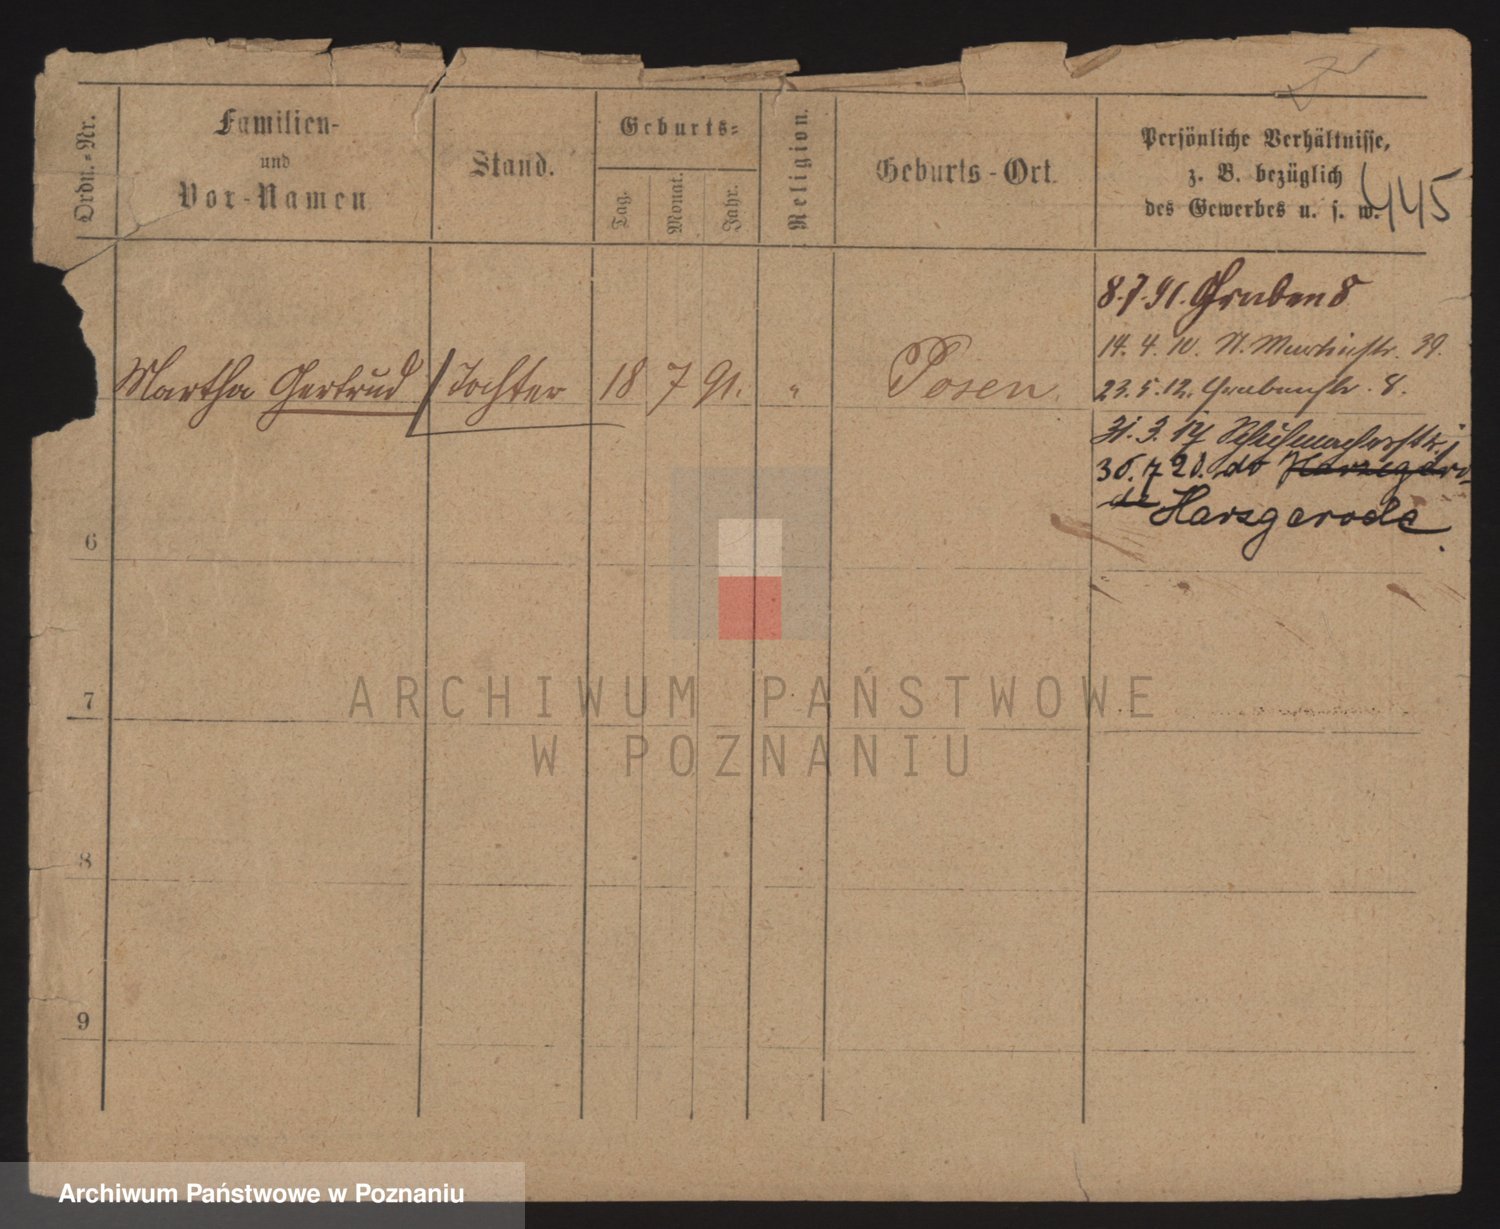 Ordn.-Nr.
Familien-
und
Vor-Namen
Stand.
Geburts-
Tag.
Monat.
Jahr.
Religion.
Geburts-Ort.
Persönliche Verhältnisse,
z. B. bezüglich
des Gewerbes u. s. w.
445
8.7.91. Graben 8
14. 4. 10. St. Martinstr. 39.
Martha Gertrud Tochter 18 7 91. " Posen.
23. 5. 12. Grabenstr. 8.
31. 3. 17 Schuhmacherstr.
30. 7 20. do
Harzgerode.
6
7
8
9
ARCHIWUM PAŃSTWOWE
W POZNANIU
Archiwum Państwowe w Poznaniu